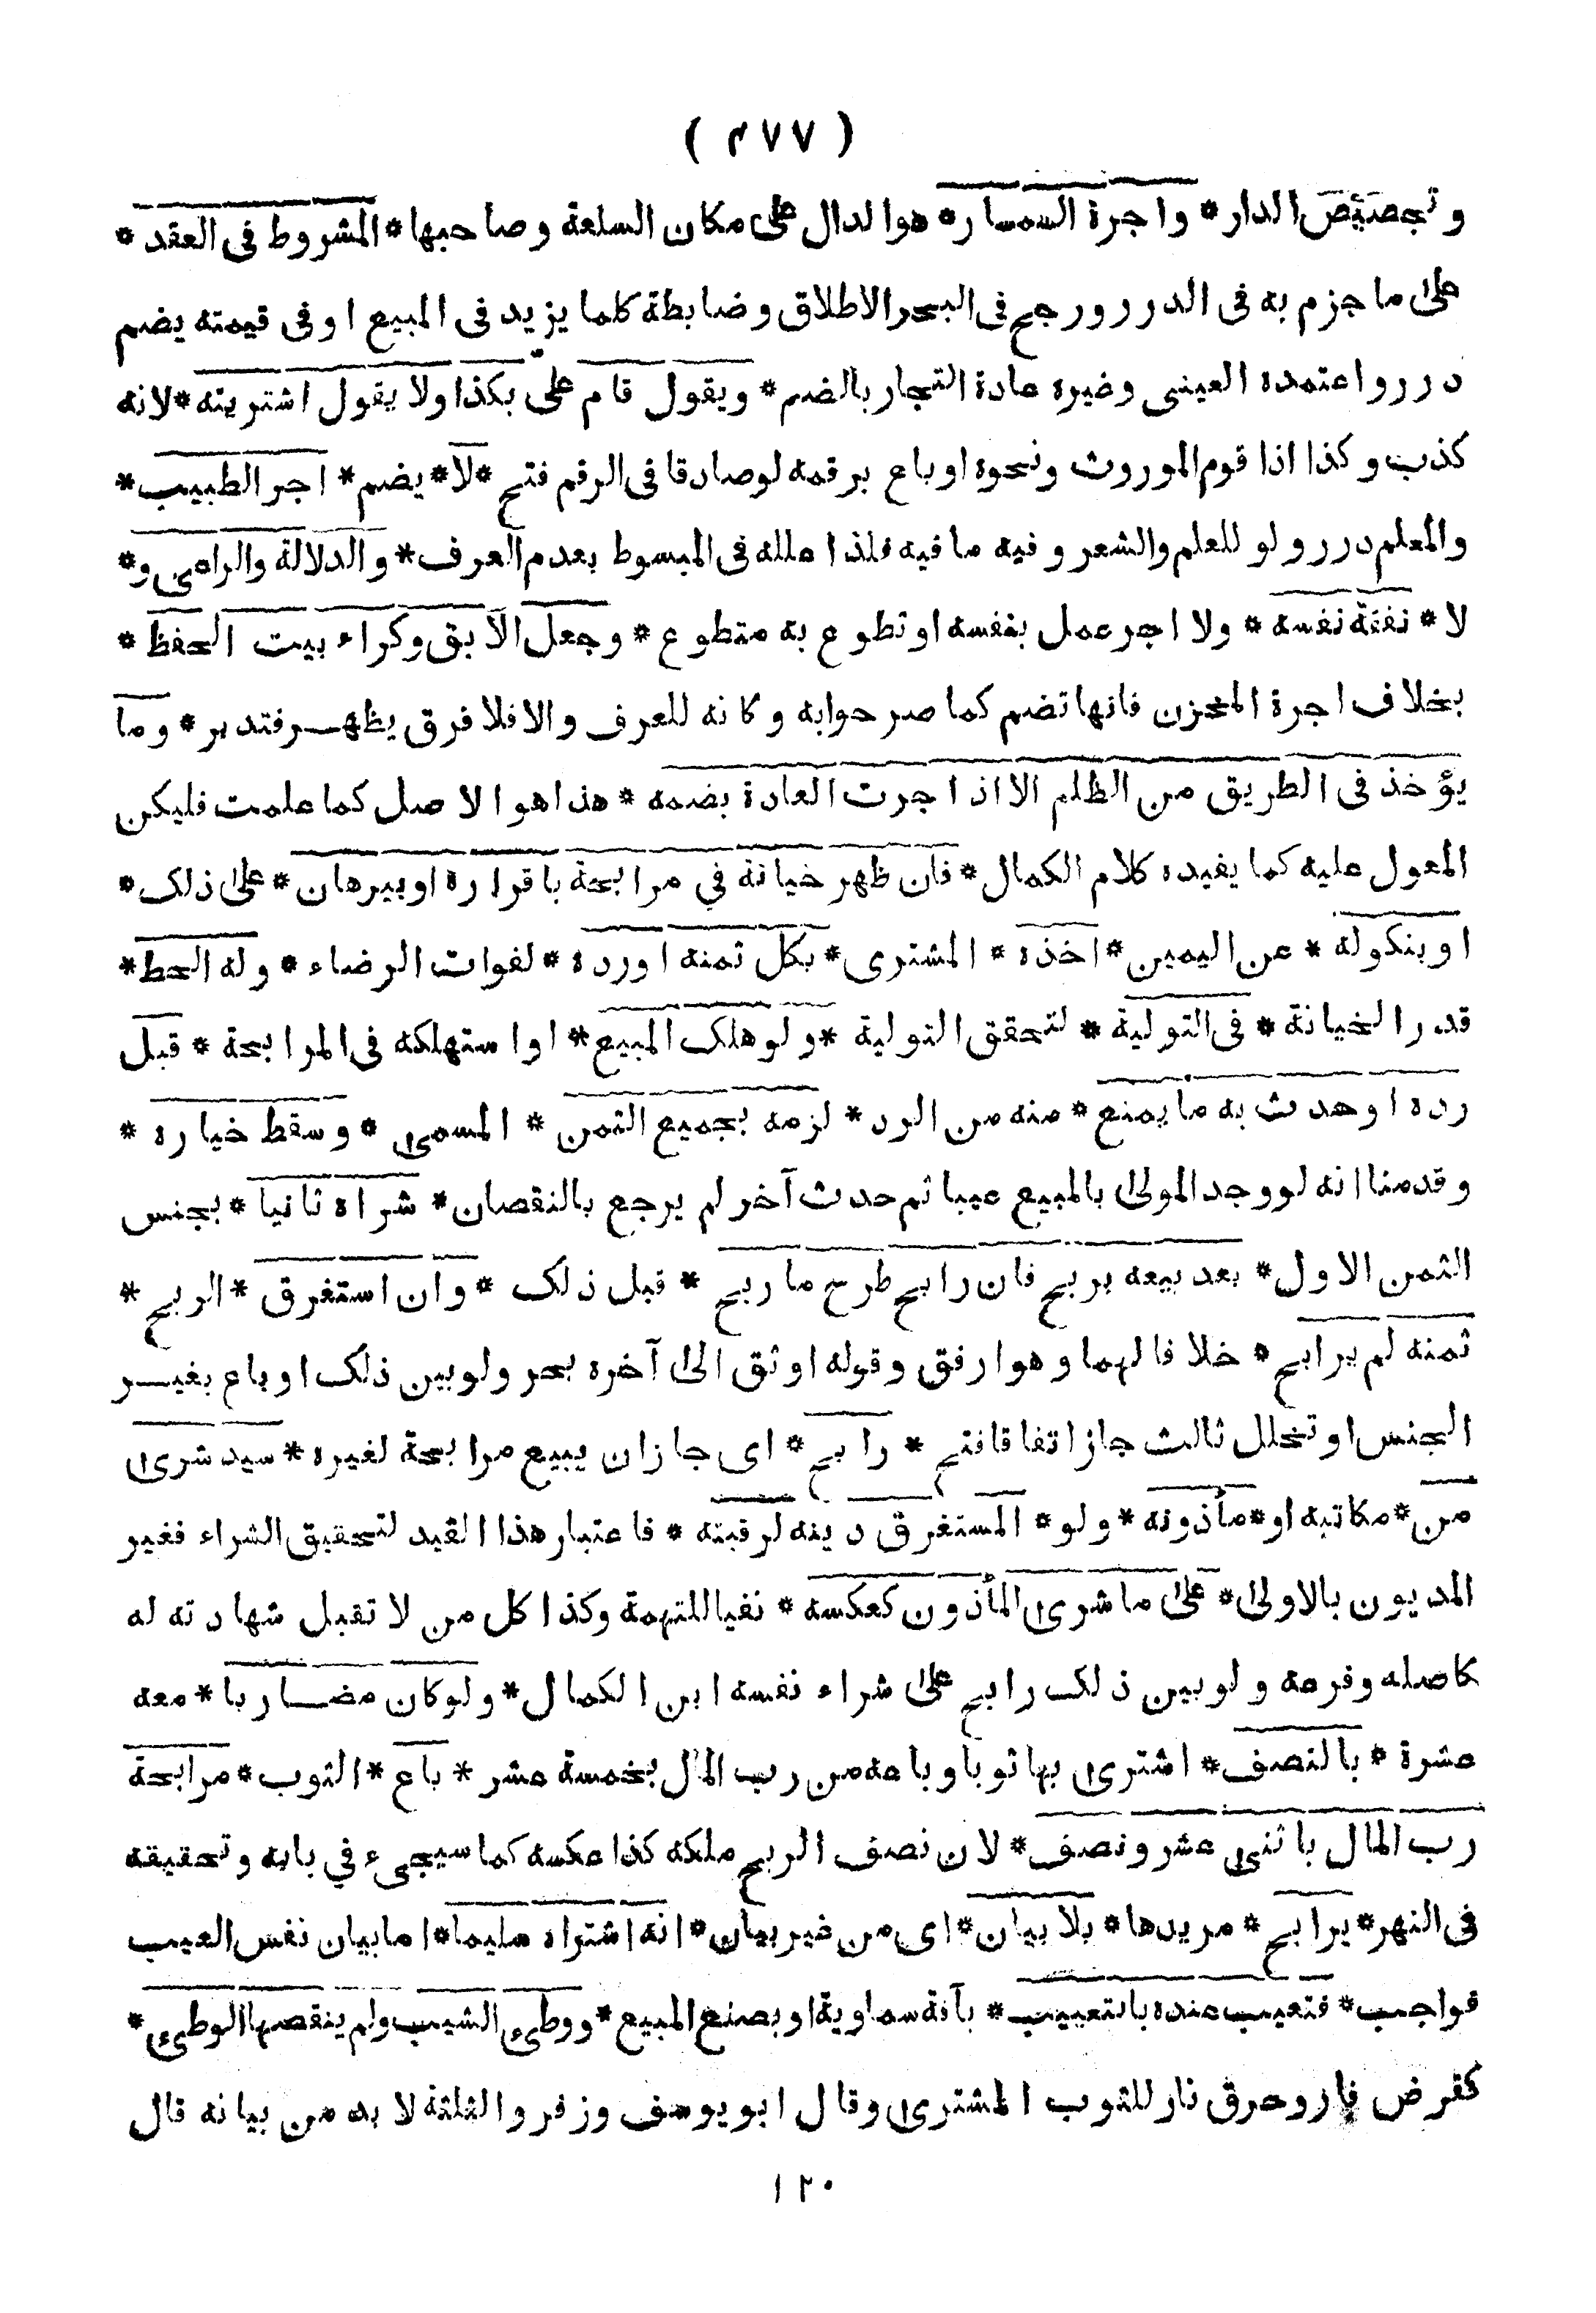 ( ٤٧٧ )
وتجصيص الدار * واجرة السمسار * هو الدال على مكان السلعة وصاحبها * المشروط فى العقد *
على ما جزم به فى الدرر ورجح فى البحر الاطلاق وضابطة كلما يزيد فى المبيع اوفى قيمته يضم
درر واعتمده العينى وغيره عادة التجار بالضم * ويقول قام علىّ بكذا ولا يقول اشتريته * لانه
كذب وكذا اذا قوم الموروث ونحوه او باع برقمه لو صادقا فى الرقم فتح * لا * يضم * اجر الطبيب *
والمعلم درر ولو للعلم والشعر وفيه ما فيه فلذا علله فى المبسوط بعدم العرف * والدلالة والراعى و *
لا * نفقة نفسه * ولا اجر عمل بنفسه او تطوع به متطوع * وجعل الآبق وكراء بيت الحفظ *
بخلاف اجرة المخزن فانها تضم كما صرحوا به وكانه للعرف والا فلا فرق يظهر فتدبر * وما
يؤخذ فى الطريق من الظلم الا اذا جرت العادة بضمه * هذا هو الاصل كما علمت فليكن
المعول عليه كما يفيده كلام الكمال * فان ظهر خيانة في مرابحة باقراره او ببرهان * على ذلك *
او بنكوله * عن اليمين * اخذه * المشترى * بكل ثمنه او رده * لفوات الرضاء * وله الحط *
قدر الخيانة * فى التولية * لتحقق التولية * ولو هلك المبيع * او استهلكه فى المرابحة * قبل
رده او حدث به ما يمنع * منه من الرد * لزمه بجميع الثمن * المسمى * وسقط خياره *
وقدمنا انه لو وجد المولى بالمبيع عيبا ثم حدث آخر لم يرجع بالنقصان * شراه ثانيا * بجنس
الثمن الاول * بعد بيعه بربح فان رابح طرح ما ربح * قبل ذلك * وان استغرق * الربح *
ثمنه لم يرابح * خلافا لهما وهو ارفق وقوله اوثق الى آخره بحر ولو بين ذلك او باع بغير
الجنس او تخلل ثالث جاز اتفاقا فتح * رابح * اى جاز ان يبيع مرابحة لغيره * سيد شرى
من * مكاتبه او * مأذونه * ولو * المستغرق دينه لرقبته * فاعتبار هذا القيد لتحقيق الشراء فغير
المديون بالاولى * على ما شرى المأذون كعكسه * نفيا للتهمة وكذا كل من لا تقبل شهادته له
كاصله وفرعه ولو بين ذلك رابح على شراء نفسه ابن الكمال * ولو كان مضاربا * معه
عشرة * بالنصف * اشترى بها ثوبا وباعه من رب المال بخمسة عشر * باع * الثوب * مرابحة
رب المال باثنى عشر ونصف * لان نصف الربح ملكه كذا عكسه كما سيجىء في بابه وتحقيقه
فى النهر * يرابح * مريدها * بلا بيان * اى من غير بيان * انه اشتراه سليما * اما بيان نفس العيب
فواجب * فتعيب عنده بالتعييب * بآفة سماوية او بصنع المبيع * ووطئ الثيب ولم ينقصها الوطئ *
كقرض فار وحرق نار للثوب المشترى وقال ابو يوسف وزفر والثلثة لا بد من بيانه قال
١٢٠